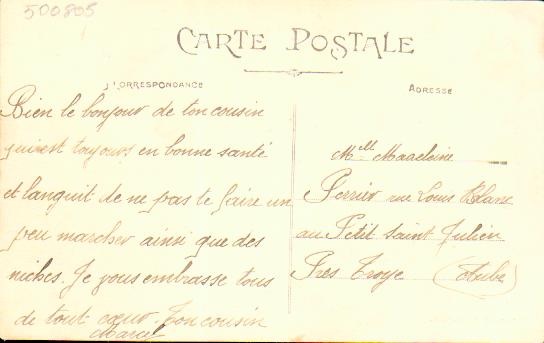 500805
CARTE POSTALE
CORRESPONDANCE
ADRESSE
Bien le bonjour de ton cousin
qui est toujours en bonne santé
et languit de ne pas te faire un
peu marcher ainsi que des
niches. Je vous embrasse tous
de tout cœur. Ton cousin
Marcel
Melle Madeleine
Perrier rue Louis Blanc
au Petit Saint Julien
Près Troye (Aube)